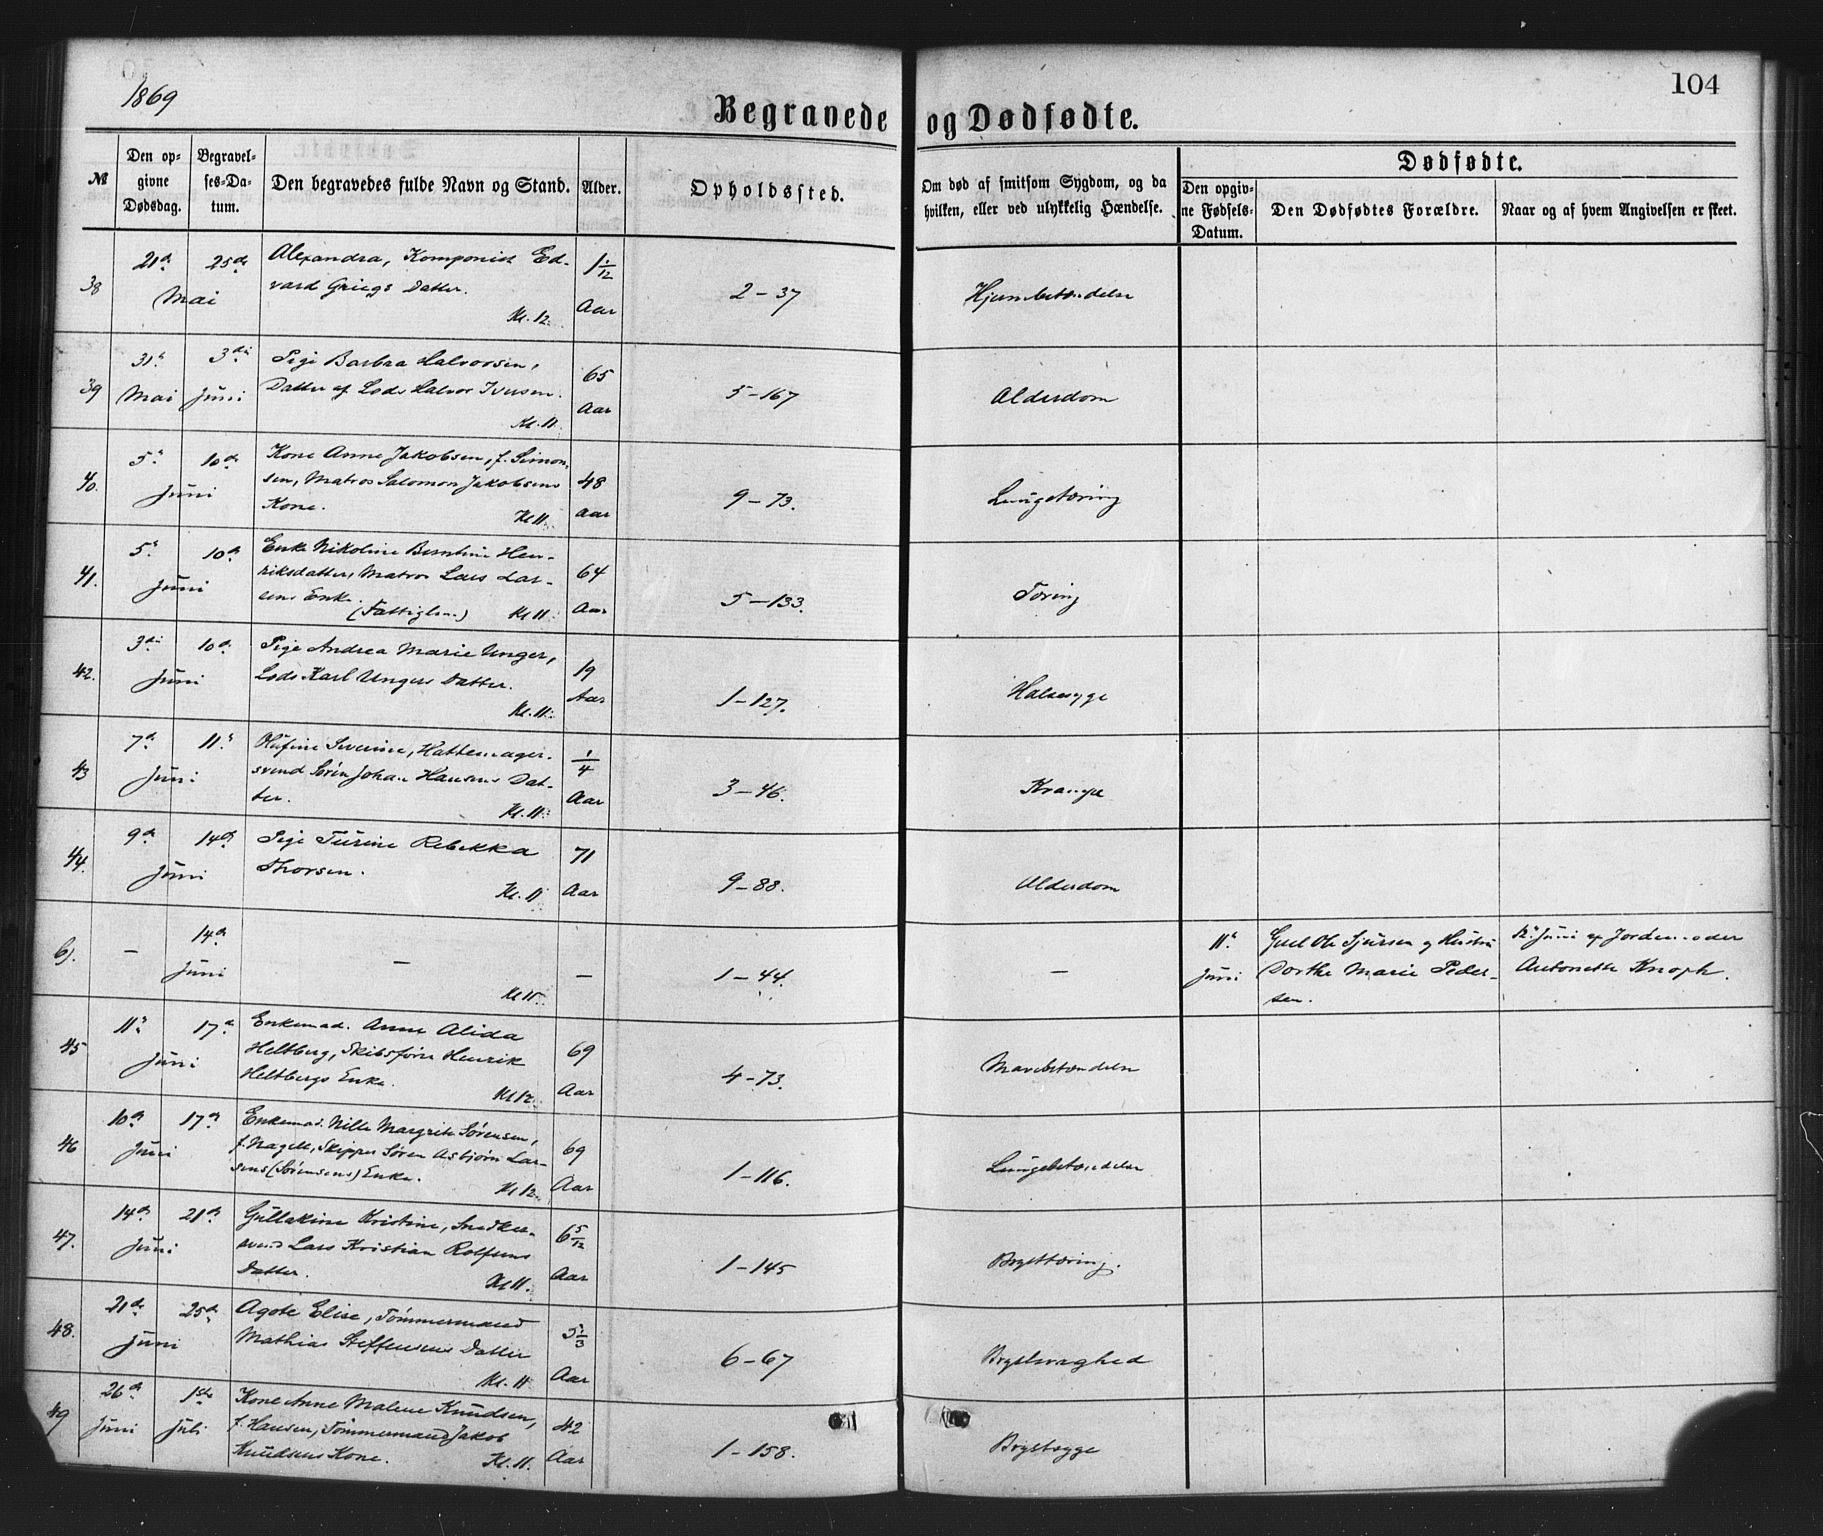 1869
104
Begravede og Dødfødte.
№
Den opgivne Dødsdag.
Begravelses-Datum.
Den begravedes fulde Navn og Stand.
Alder.
Opholdssted.
Om død af smitsom Sygdom, og da hvilken, eller ved ulykkelig Hændelse.
Dødfødte.
Den opgivne Fødsels-Datum.
Den Dødfødtes Forældre.
Naar og af hvem Angivelsen er skeet.
38 21de 25de Mai
Alexandra, Komponist Ed-
vard Griegs Datter.
Kl. 12.
1 1/12 Aar
2-37
Hjernebetændelse
39 31te Mai 3die Juni
Pige Barbra Halvorsen,
Datter af Lods Halvor Iversen.
Kl. 11.
65 Aar
5-167
Alderdom
40. 5te 10de Juni
Kone Anne Jakobsen, f. Simon-
sen, Matros Salomon Jakobsens
Kone. Kl 11.
48 Aar
9-73.
Lungetæring
41. 5te 10de Juni
Enke Nikoline Berntine Hen-
riksdatter, Matros Lars Lar-
sens Enke.
(Fattiglem.) Kl 11.
64 Aar
5-133.
Tæring
42. 3die 10de Juni
Pige Andrea Marie Unger,
Lods Karl Ungers Datter.
Kl. 11.
19 Aar
1-127.
Halssyge
43 7de 11te Juni
Olufine Severine, Hattemager-
svend Søren Johan Hansens Dat-
ter. Kl. 11.
1/4 Aar
3-46.
Krampe
44. 9de 14de Juni
Pige Turine Rebekka
Thorsen.
Kl. 11
71 Aar
9-88.
Alderdom
6). - 14de Juni
-
Kl 11.
-
1-44.
-
11te Juni
Ole Sjursen og Hustru
Dorthe Marie Peder-
sen.
12te Juni af Jordemoder
Antonette Knoph.
45 11te 17de Juni
Enkemad. Anne Alida
Heltberg, Skibsfører Henrik
Heltbergs Enke.
Kl 12.
69 Aar
4-73.
Mavebetændelse
46 10de 17de Juni
Enkemad. Nille Margrite Sørensen,
f. Nagell, Skipper Søren Asbjørn Lar-
sens (Sørensens) Enke.
Kl 12.
69 Aar
1-116.
Lungebetændelse
47. 14de 21de Juni
Gullakine Kristine, Snedker-
svend Lars Kristian Rolfsens
Datter. Kl 11.
6 5/12 Aar
1-145
Brysttæring.
48. 21de 25de Juni
Agote Elise, Tømmermand
Mathias Steffensens Datter
Kl. 11
5 1/3 Aar
6-67
Brystsvaghed
49 26de Juni 1ste Juli
Kone Anne Malene Knudsen,
f. Hansen, Tømmermand Jakob
Knudsens Kone. Kl. 11.
42 Aar
1-158.
Brystsyge